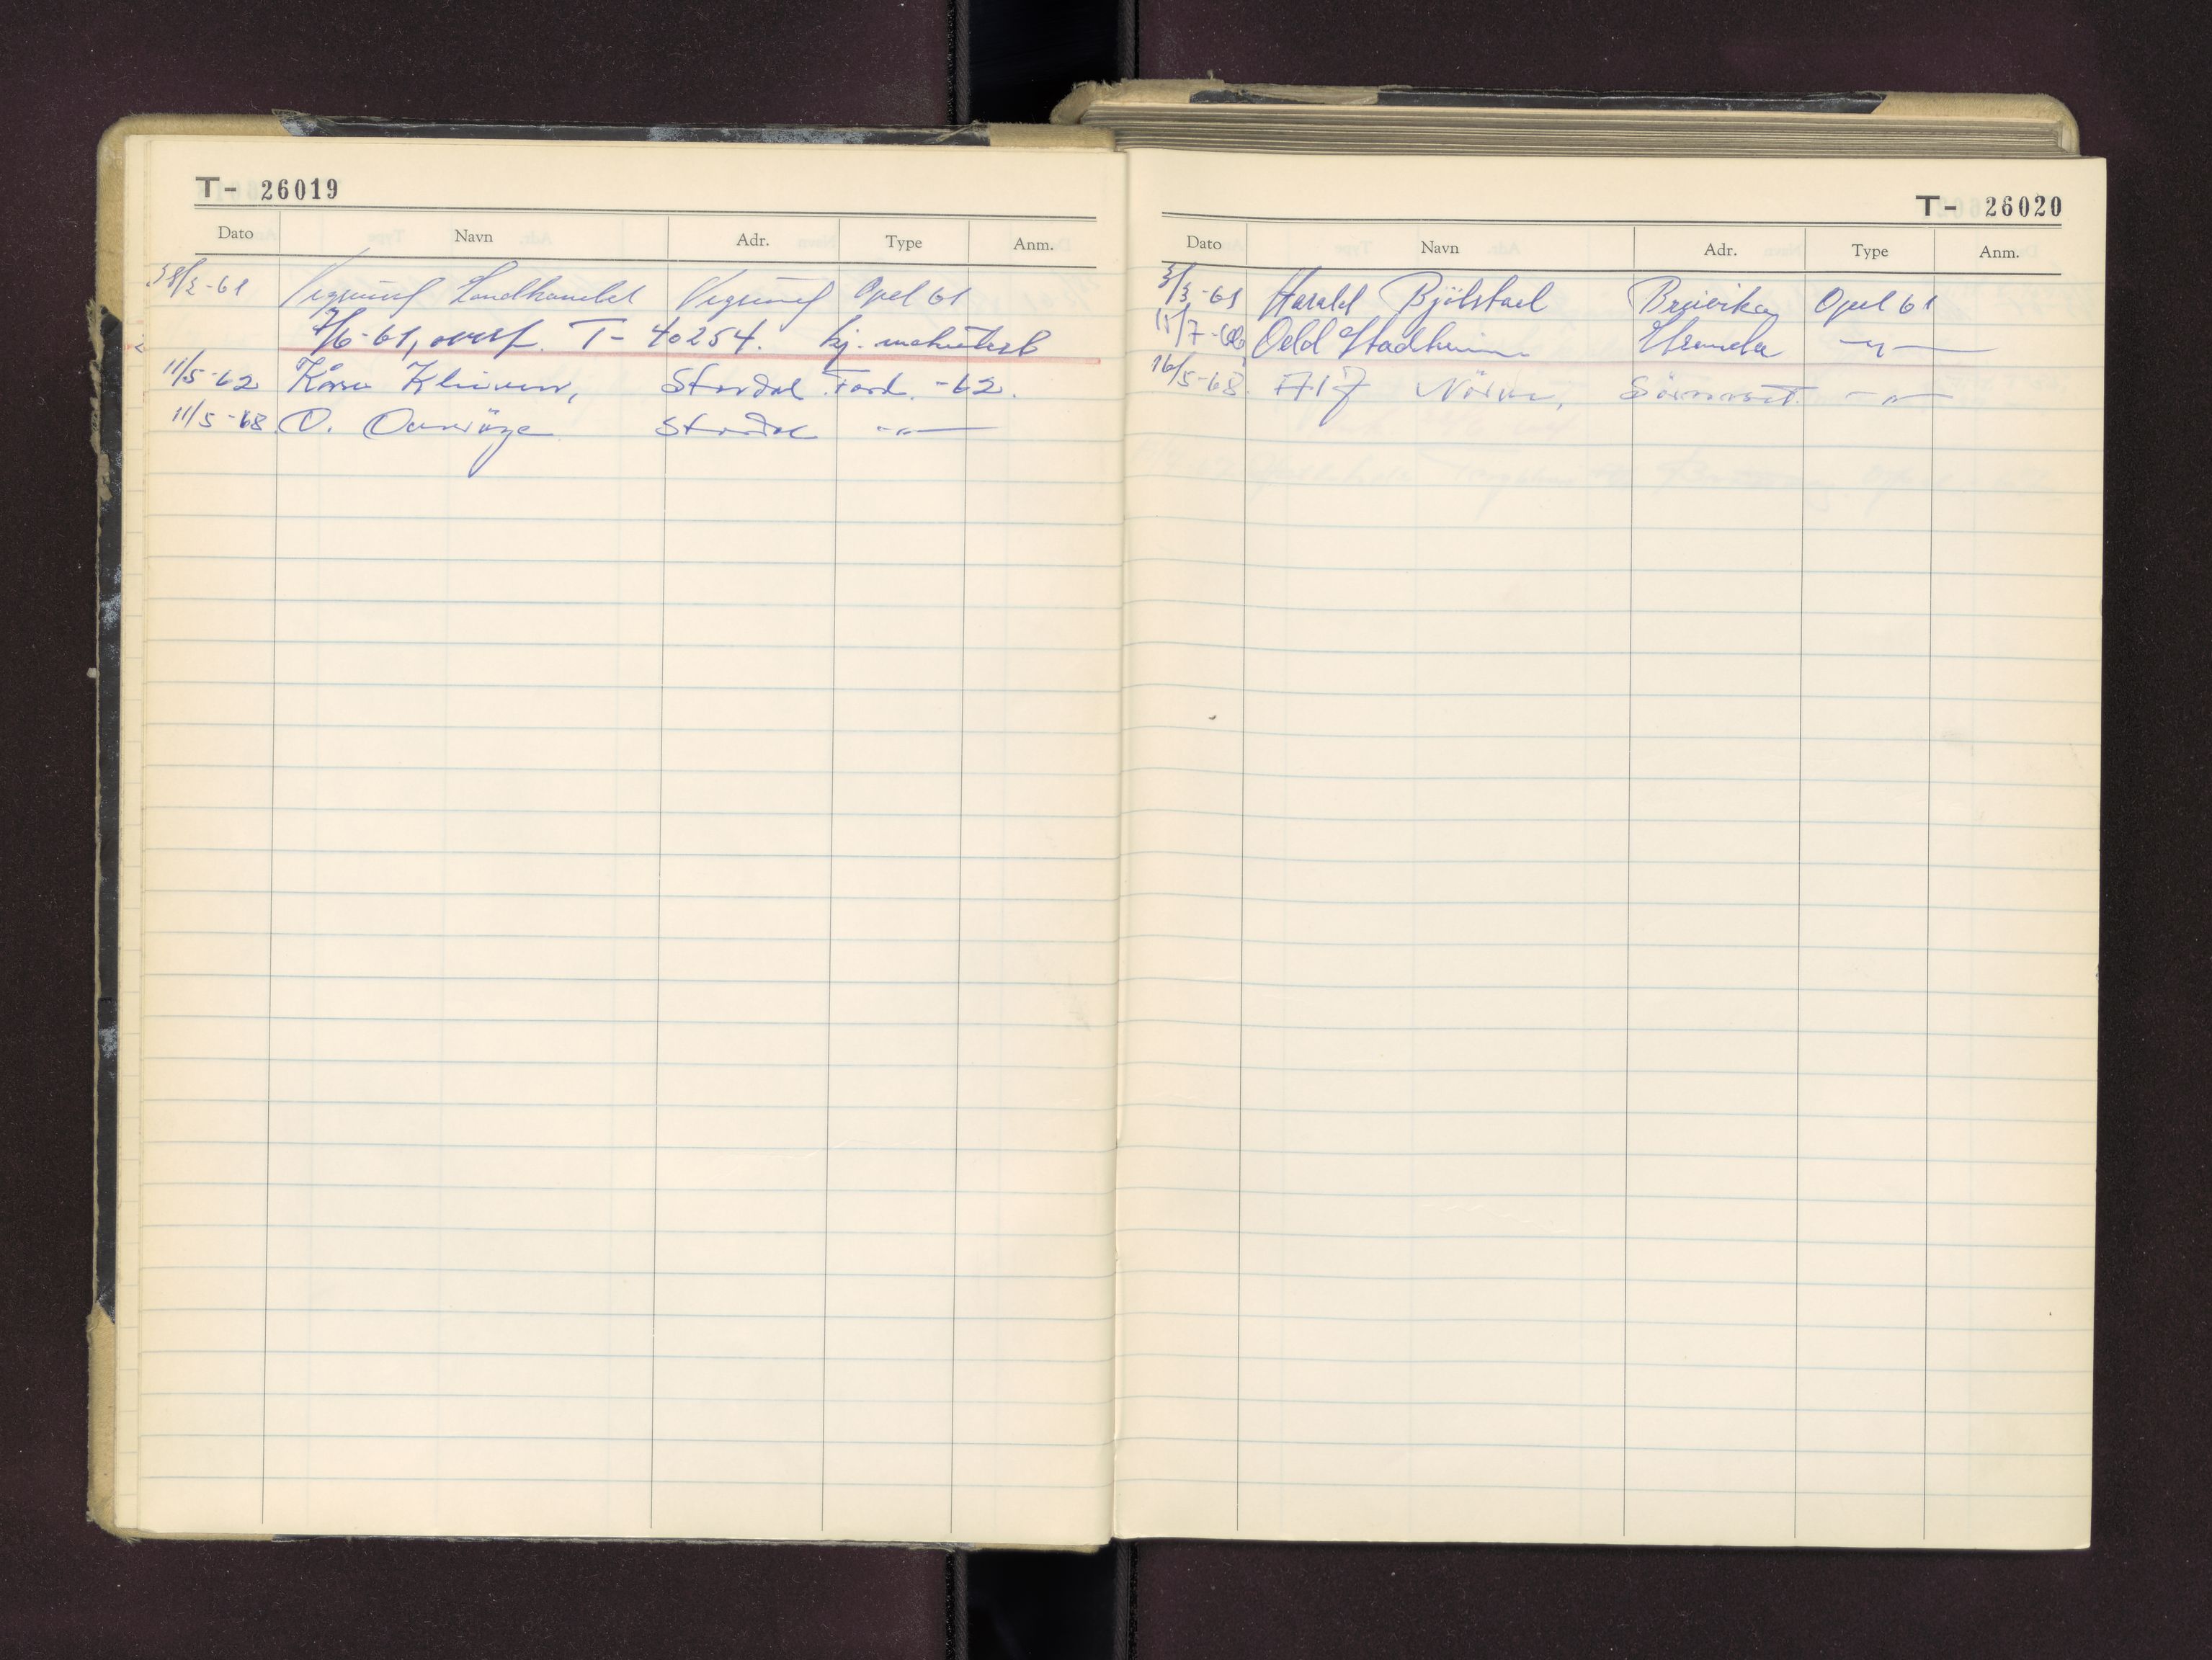 T- 26019
Dato Navn Adr. Type Anm.
28/2-61 Vegsund Landhandel Vegsund Opel 61
7/6-61, overf. T- 40254. kj.
11/5-62 Kåre Stordal Ford -62.
11/5-68 O. Stordal -"-
T- 26020
Dato Navn Adr. Type Anm.
3/3-61 Harald Bjölstad Breivika Opel 61
15/7-66 Odd Stadheim Stranda -"-
16/5-68 A/S Nörve, -"-